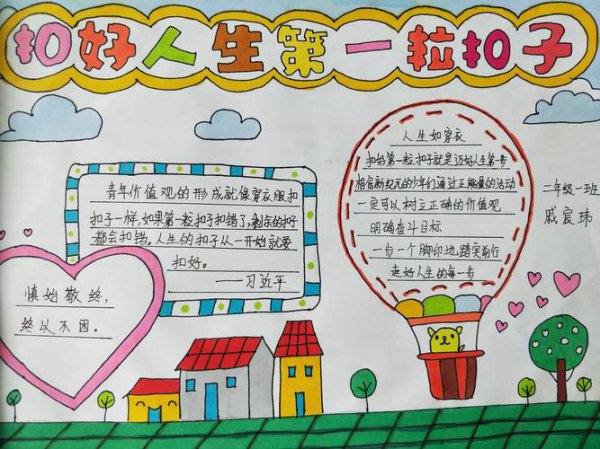 扣好人生第一粒扣子
青年价值观的形成就像穿衣服扣
扣子一样，如果第一粒扣子扣错了，剩余的扣子
都会扣错。人生的扣子从一开始就要
扣好。
——习近平
慎始敬终，
终以不困。
人生如穿衣
扣好第一粒扣子就是迈好人生第一步
相信新纪元的少年们通过正能量的活动
一定可以树立正确的价值观
明确奋斗目标
一步一个脚印地踏实前行
走好人生的每一步
二年级一班
戚宸玮